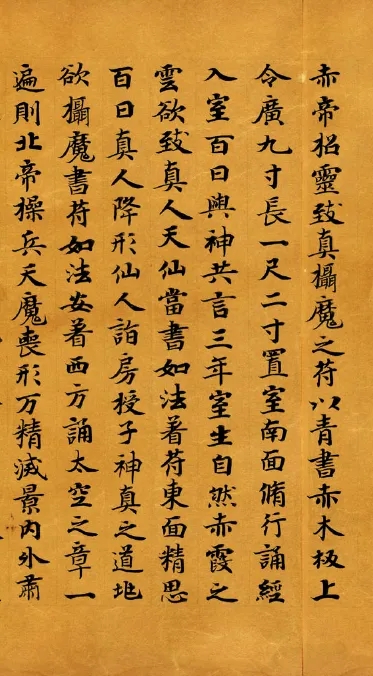 赤帝招靈致真攝魔之苻以青書赤木板上
令廣九寸長一尺二寸置室南面脩行誦經
入室百日與神共言三年室生自然赤霞之
雲欲致真人天仙當書如法著苻東面精思
百日真人降形仙人詣房授子神真之道也
欲攝魔書苻如法安著西方誦太空之章一
遍則北帝操兵天魔喪形万精滅景內外肅